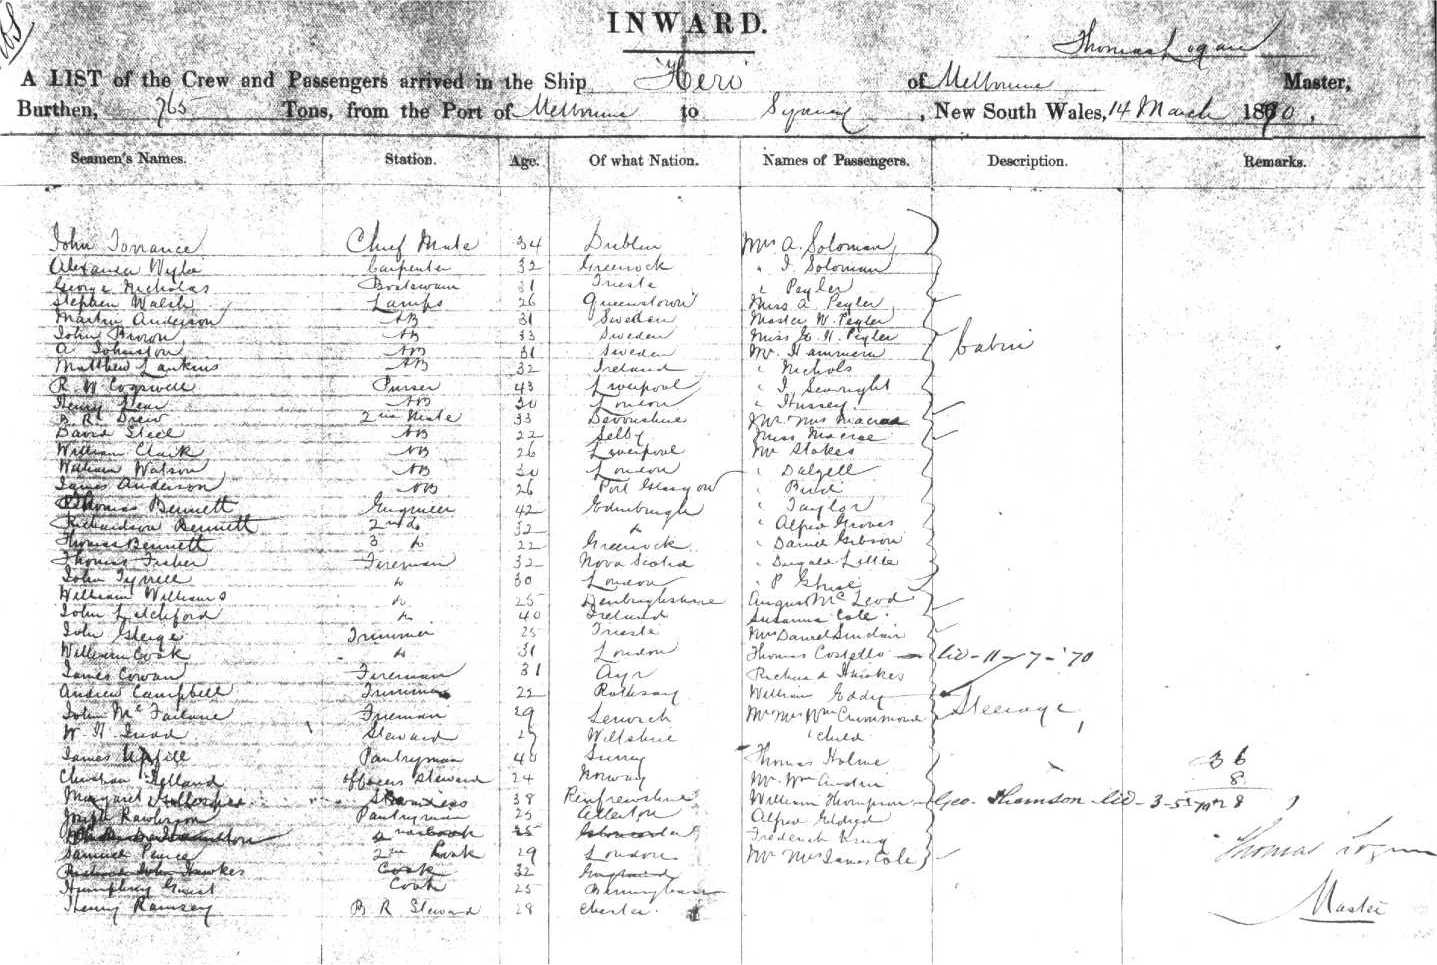 INWARD.
Thomas Logan
A LIST of the Crew and Passengers arrived in the Ship Hero of Melbourne Master,
Burthen, 765 Tons, from the Port of Melbourne to Sydney, New South Wales, 14 March 1870.
Seamen's Names. Station. Age. Of what Nation. Names of Passengers. Description. Remarks.
John Torrance Chief Mate 34 Dublin Mrs A. Soloman
Alexander Wylie Carpenter 32 Greenock " I Soloman
George Nicholas Boatswain 31 Trieste " Pegler
Stephen Walsh Lamps 26 Queenstown Miss A Pegler
Martin Anderson AB 31 Sweden Master W. Pegler
John Brown AB 33 Sweden Miss E. N. Pegler
A Johnston AB 31 Sweden Mr Hammern Cabin
Matthew Lankins AB 32 Ireland " Nichols
R. W. Cogswell Purser 43 Liverpool " J Searight
Henry AB 30 London " Hussey
B R Drew 2nd Mate 33 Devonshire Mr Mrs Macrae
David Steel AB 22 Selby Miss Macrae
William Clark AB 26 Liverpool Mr Stokes
William Watson AB 30 London " Dalzell
James Anderson AB 26 Port Glasgow "
Thomas Bennett Engineer 42 Edinburgh " Taylor
Richardson Bennett 2nd do 32 do " Alfred Groves
Thomas Bennett 3 do 22 Greenock " Daniel Gibson
Thomas Fisher Fireman 32 Nova Scotia " Dugald Little
John Tyrrell do 30 London " P
William Williams do 25 Denbighshire Angus McLeod
John Letchford do 40 Ireland Susanna Cole
John Trimmer 25 Trieste Mrs Daniel Sinclair
William Cook do 31 London Thomas Costello lid - 11 - 7 - '70
James Cowan Fireman 31 Ayr Richard
Andrew Campbell Trimmer 22 Rothesay William Eddy
John McFarlane Fireman 29 Mr Mrs Wm Crummond Steerage
W. H. Steward 29 Wiltshire 1 child
James Pantryman 40 Surrey Thomas Holme 36
Christian officers Steward 24 Norway Mr Wm Austin 8
Margaret Stewardess 38 Renfrewshire William Thompson Geo. Thomson lid - 3 - 5
Joseph Rawlinson Pantryman 25 Alfred
25 Frederick King
Samuel Pearce 2nd Cook 29 London Mr Mrs James Cole Thomas Logan
Richard John Hawkes Cook 32 England
Humphrey Guest Cook 25 Birmingham
Henry Ramsey B R Steward 28 Chester Master